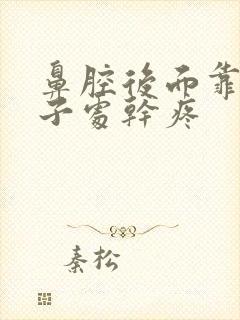 鼻腔後面靠
子處幹疼
秦松